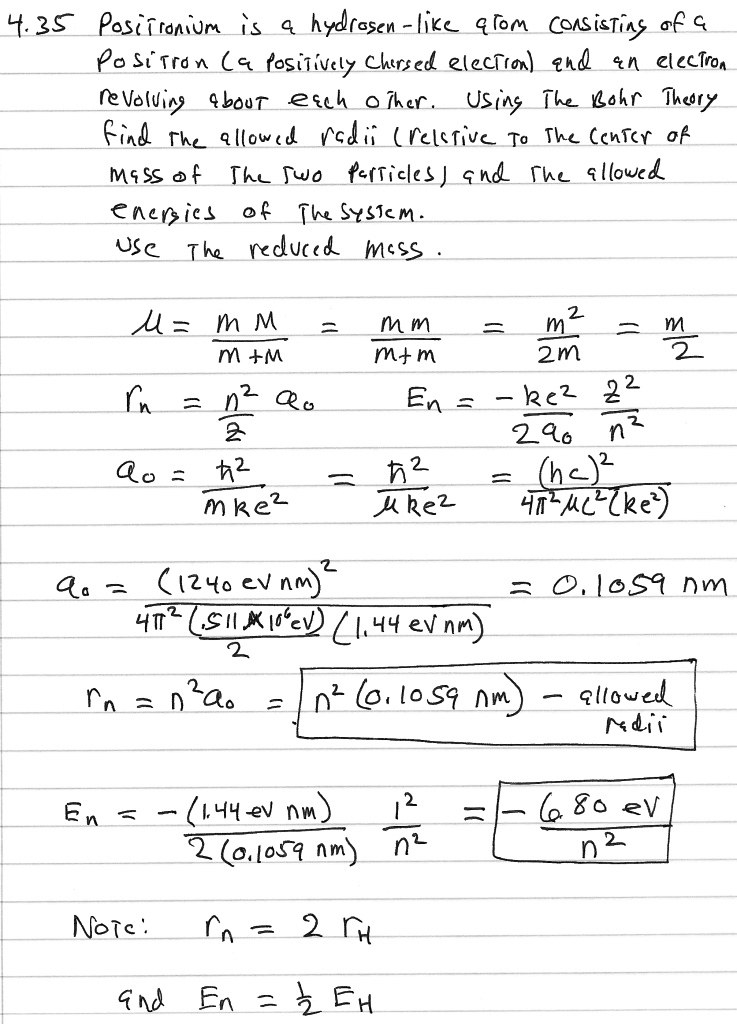 4.35 Positronium is a hydrogen-like atom consisting of a
Positron (a positively charged electron) and an electron
revolving about each other. Using The Bohr Theory
find the allowed radii (relative to the center of
mass of the two particles) and the allowed
energies of the system.
Use the reduced mass.
μ = mM/(m+M) = mm/(m+m) = m²/2m = m/2
rₙ = n²/Z a₀ Eₙ = -ke²/2a₀ Z²/n²
a₀ = ħ²/mke² = ħ²/μke² = (hc)²/4π²μc²(ke²)
a₀ = (1240 eV nm)²/4π²(.511×10⁶eV)/2 (1.44 eV nm) = 0.1059 nm
rₙ = n²a₀ = n² (0.1059 nm) - allowed
radii
Eₙ = -(1.44 eV nm)/2(0.1059 nm) 1²/n² = -6.80 eV/n²
Note: rₙ = 2 r_H
and Eₙ = ½ E_H